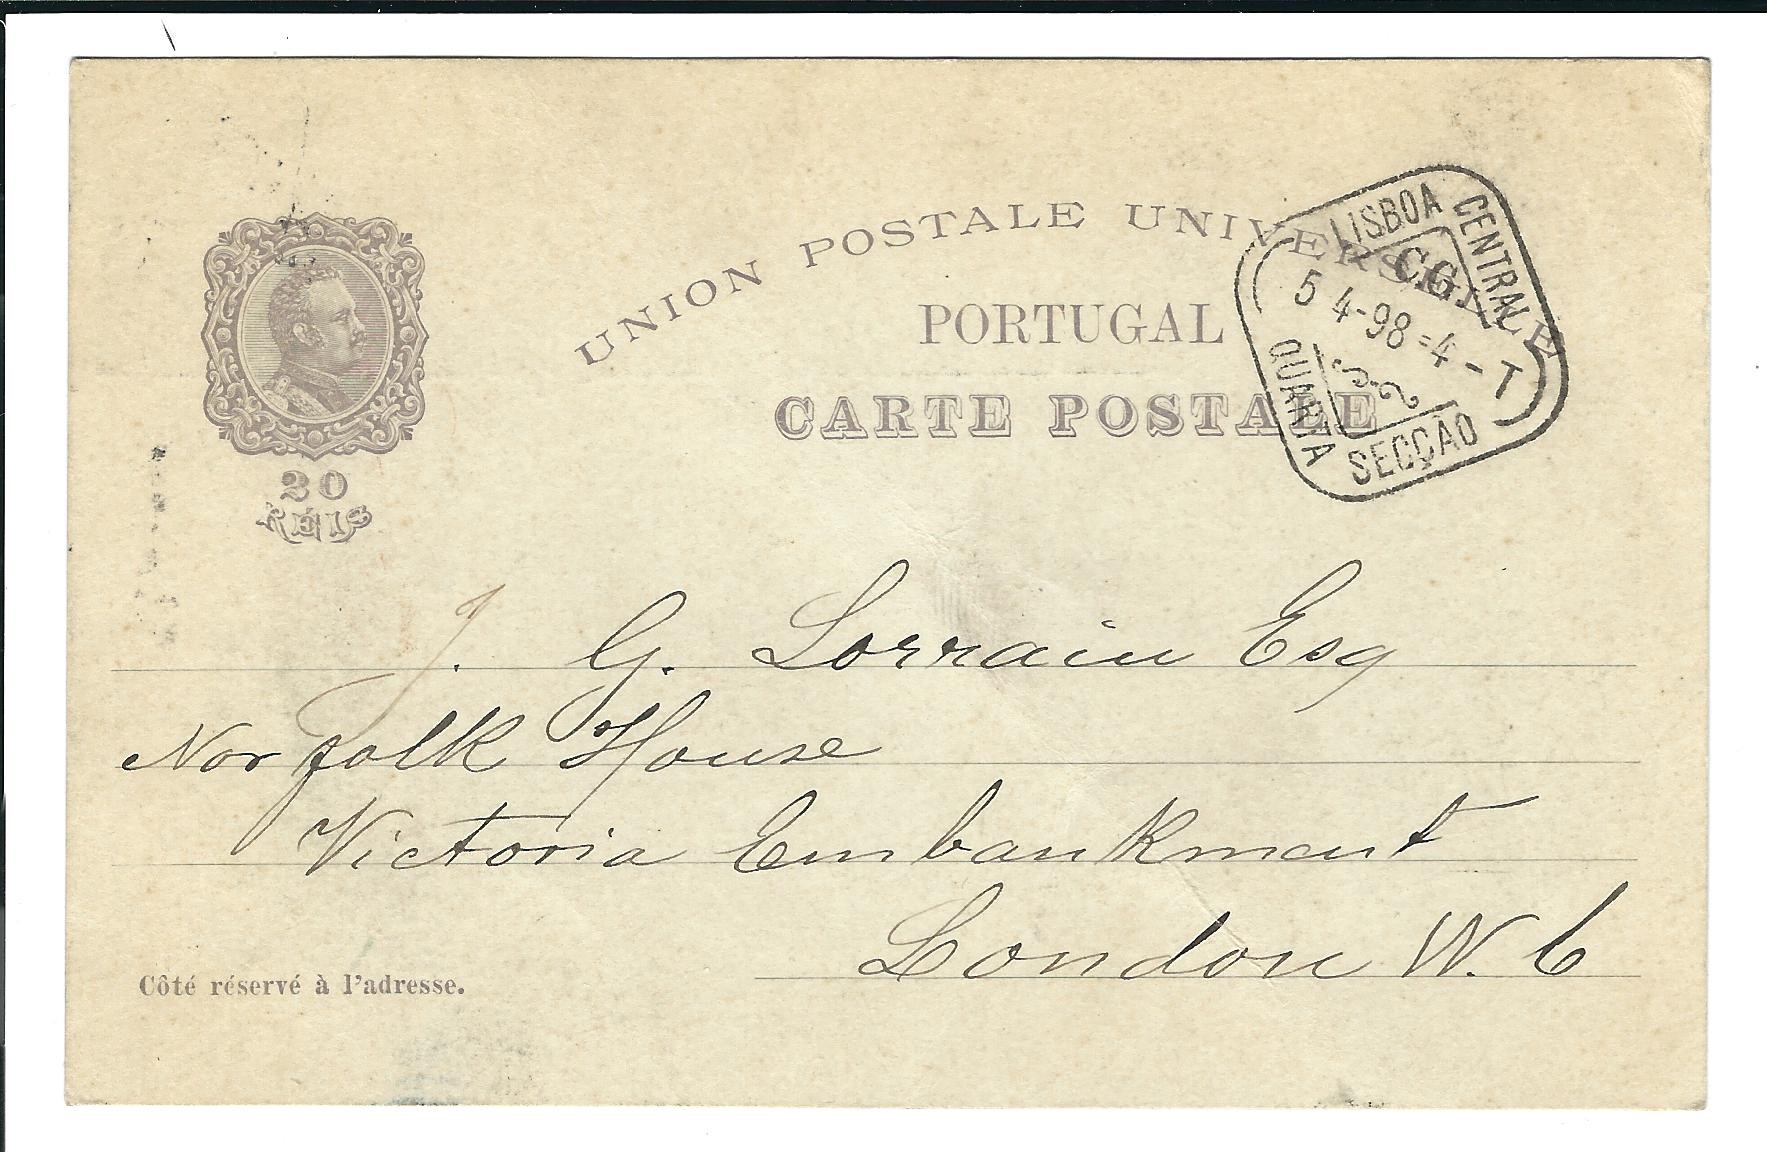 UNION POSTALE UNIVERSELLE
PORTUGAL
CARTE POSTALE
20
RÉIS
LISBOA CENTRAL
C.G.
5 4-98=4-T
QUARTA SECÇÃO
J. G. Lorrain Esq
Norfolk House
Victoria Embankment
London W.C
Côté réservé à l'adresse.